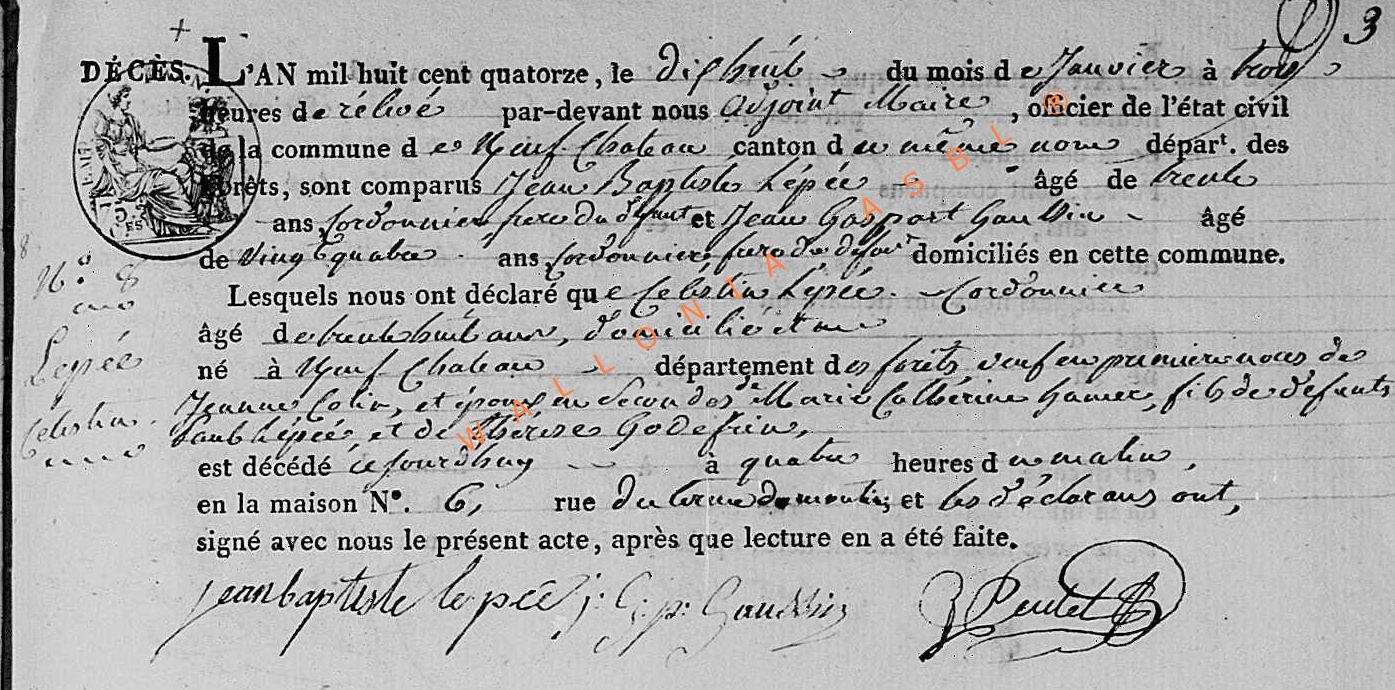 3
DÉCÈS. L'AN mil huit cent quatorze, le dixhuit du mois de Janvier à trois
heures de rélevé par-devant nous adjoint Maire, officier de l'état civil
de la commune de Neuf-Chateau canton du même nom départ. des
Forêts, sont comparus Jean Baptiste Lépée âgé de trente
ans, cordonnier frere du défunt et Jean Gaspart Gaussin âgé
de vingt quatre ans, cordonnier du défunt domiciliés en cette commune.
N.° 8
Lesquels nous ont déclaré que Célestin Lépée. Cordonnier
âgé de trente huit ans, domicilié et
Lepée
né à Neuf-Chateau département des forêts veuf en premiere noces de
Jeanne Colin, et époux en secondes de Marie Catherine, fils de défunts
Celestin
Lépée et de Therese Godefrin,
est décédé ce jourdhuy à quatre heures du matin,
en la maison N.° 6, rue du et les déclarans ont,
signé avec nous le présent acte, après que lecture en a été faite.
jean baptiste lepée j: G: p: Gaussin
WALLONIA ASBL ®